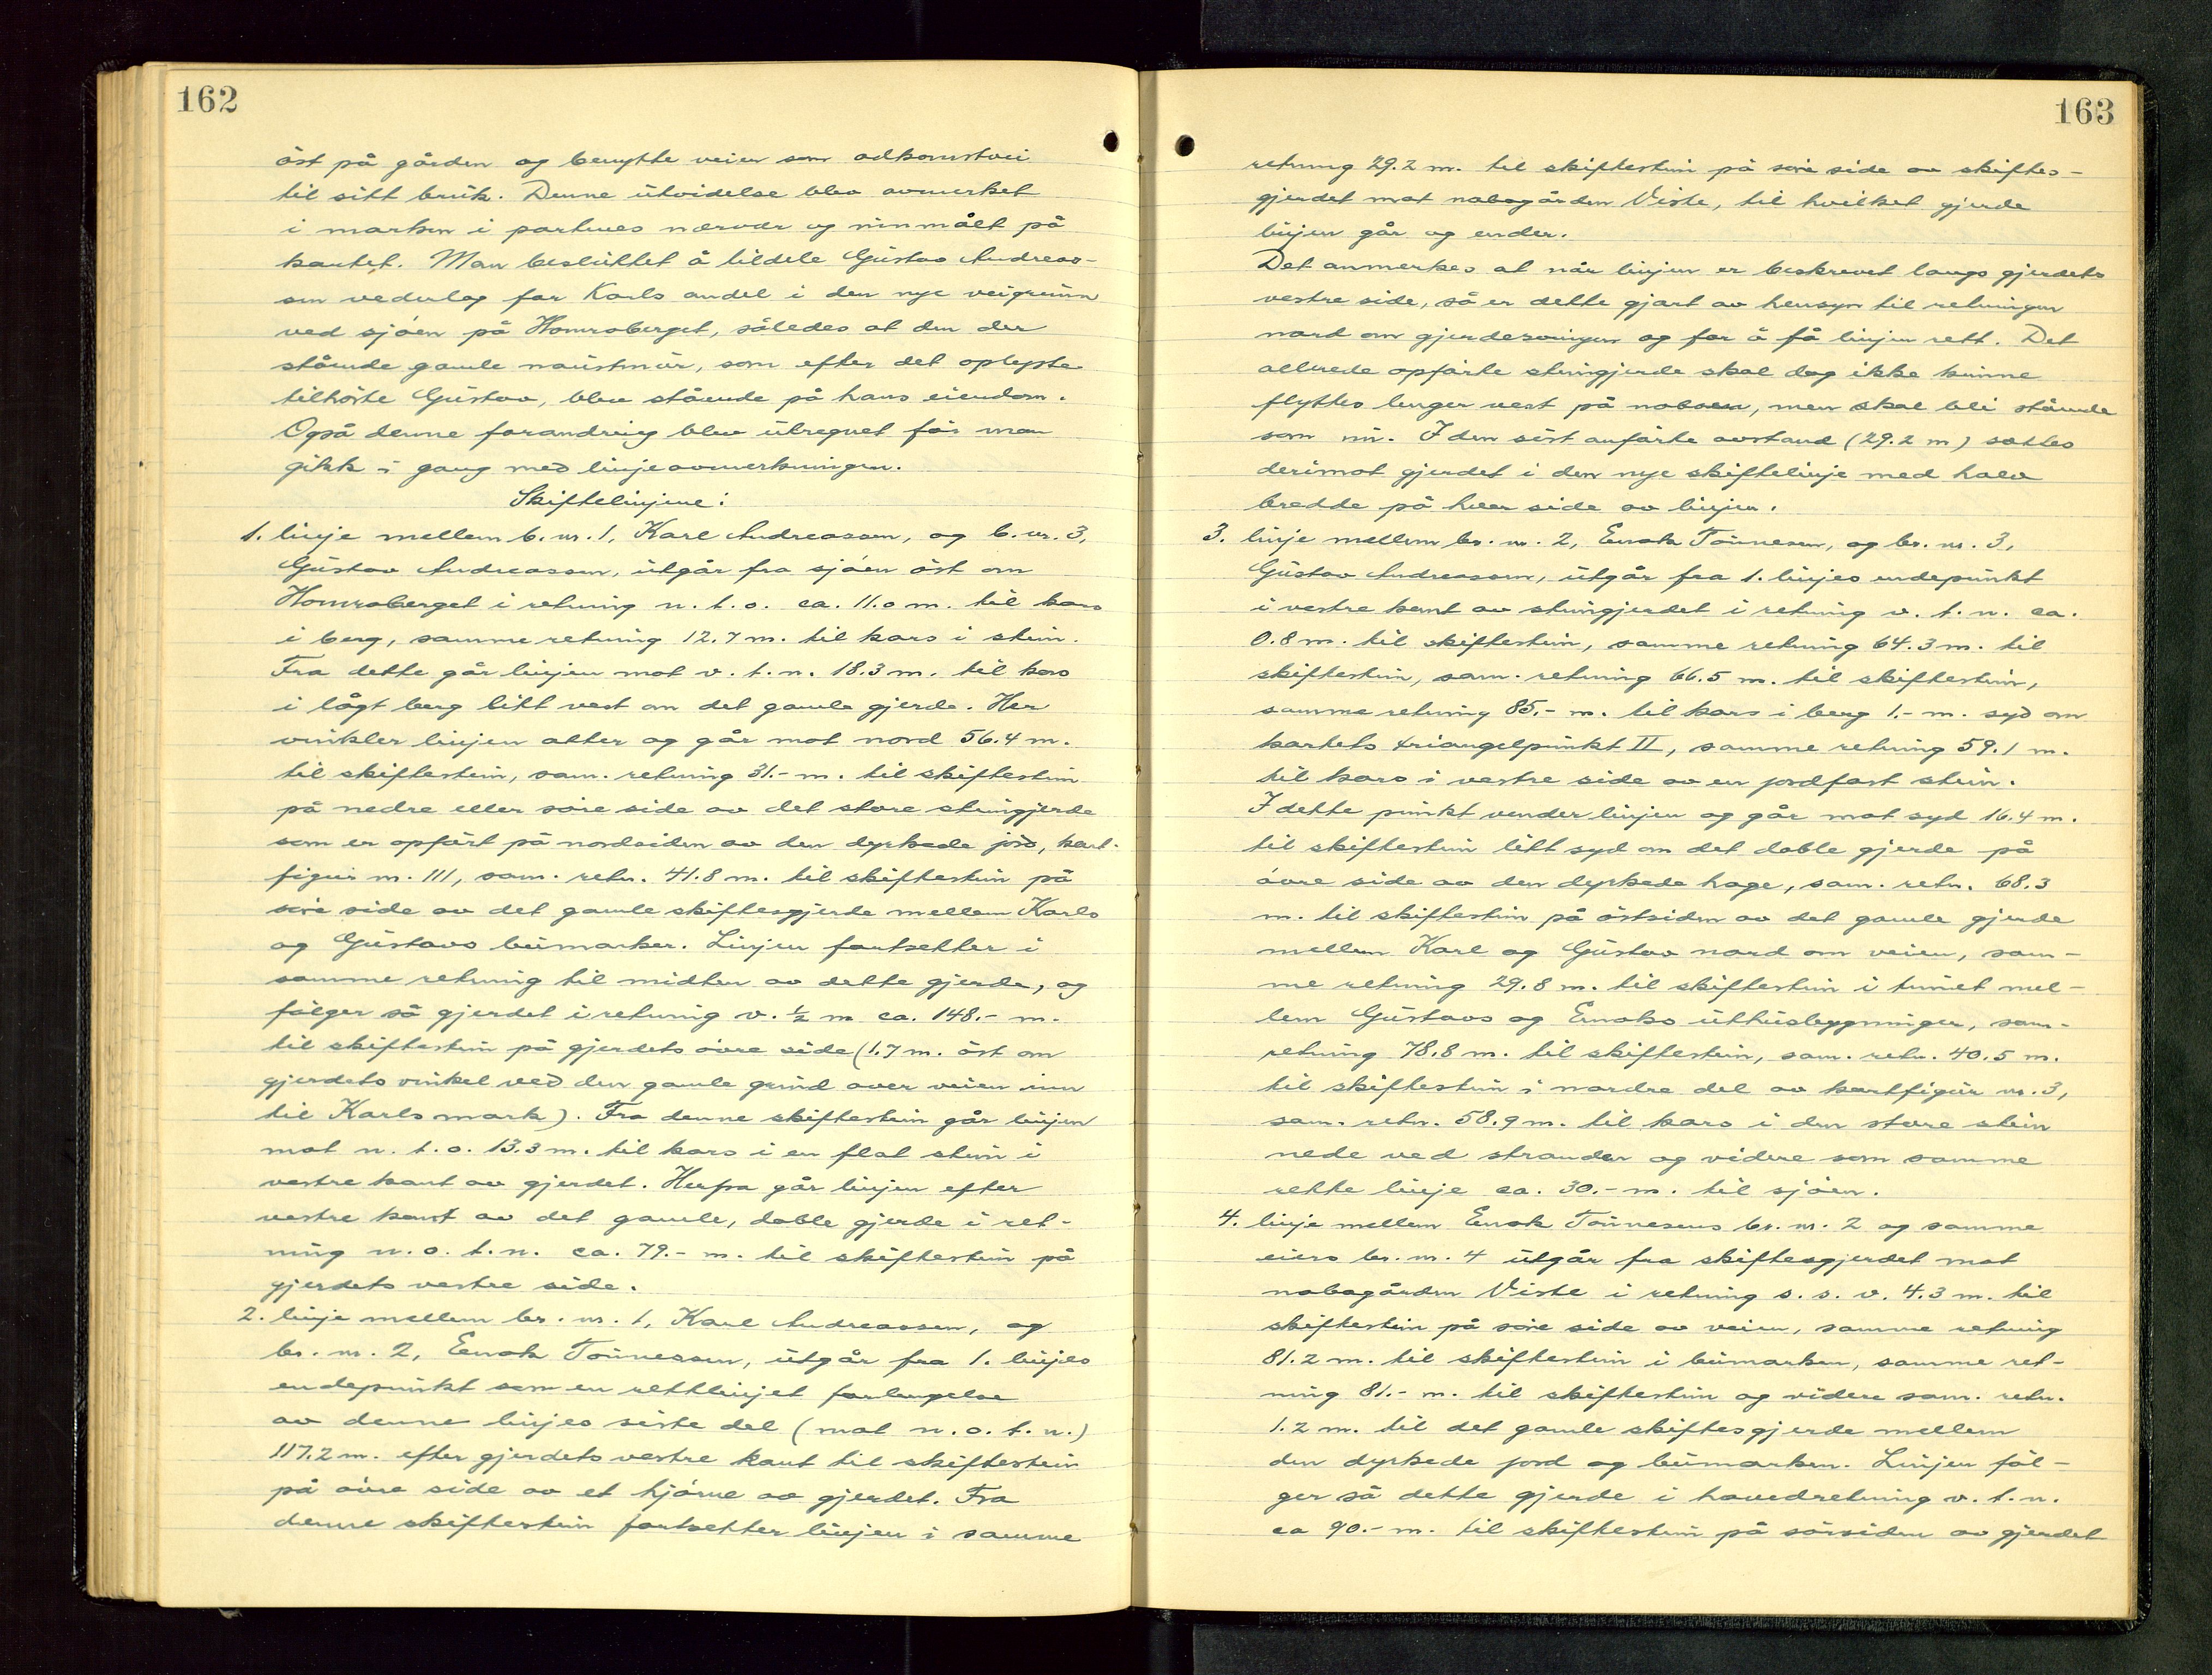 162
öst på gården og benytte veien som adkomstvei
til sitt bruk. Denne utvidelse blev avmerket
i marken i partenes nærvær og innmålt på
kartet. Man besluttet å tildele Gustav Andreas-
sen vederlag for Karls andel i den nye veigrunn
ved sjöen på Homraberget, således at den der
stående gamle naustmur, som efter det oplyste
tilhörte Gustav, blev stående på hans eiendom.
Også denne forandring blev utregnet för man
gikk i gang med linjeavmerkningen.
Skiftelinjene:
1. linje mellem b. nr. 1, Karl Andreassen, og b. nr. 3,
Gustav Andreassen, utgår fra sjöen öst om
Homraberget i retning n. t. o. ca. 11.0 m. til kors
i berg, samme retning 12.7 m. til kors i stein.
Fra dette går linjen mot v. t. n. 18.3 m. til kors
i lågt berg litt vest om det gamle gjerde. Her
vinkler linjen atter og går mot nord 56.4 m.
til skiftestein, sam. retning 31.- m. til skiftestein
på nedre eller söre side av det store steingjerde
som er opfört på nordsiden av den dyrkede jord, kart-
figur nr. 111, sam. retn. 41.8 m. til skiftestein på
söre side av det gamle skiftesgjerde mellem Karls
og Gustavs bumarker. Linjen fortsetter i
samme retning til midten av dette gjerde, og
fölger så gjerdet i retning v. ½ n ca. 148.- m.
til skiftestein på gjerdets övre side (1.7 m. öst om
gjerdets vinkel ved den gamle grind over veien inn
til Karls mark). Fra denne skiftestein går linjen
mot n. t. o. 13.3 m. til kors i en flat stein i
vestre kant av gjerdet. Herfra går linjen efter
vestre kant av det gamle, doble gjerde i ret-
ning n. o. t. n. ca. 79.- m. til skiftestein på
gjerdets vestre side.
2. linje mellem br. nr. 1, Karl Andreassen, og
br. nr. 2, Enok Tönnessen, utgår fra 1. linjes
endepunkt som en rettlinjet forlengelse
av denne linjes siste del (mot n. o. t. n.)
117.2 m. efter gjerdets vestre kant til skiftestein
på övre side av et hjörne av gjerdet. Fra
denne skiftestein fortsetter linjen i samme
163
retning 29.2 m. til skiftestein på söre side av skiftes-
gjerdet mot nabogården Viste, til hvilket gjerde
linjen går og ender.
Det anmerkes at når linjen er beskrevet langs gjerdets
vestre side, så er dette gjort av hensyn til retningen
nord om gjerdesvingen og for å få linjen rett. Det
allerede opförte steingjerde skal dog ikke kunne
flyttes lenger vest på naboen, men skal bli stående
som nu. I den sist anförte avstand (29.2 m) settes
derimot gjerdet i den nye skiftelinje med halv
bredde på hver side av linjen.
3. linje mellem br. nr. 2, Enok Tönnesen, og br. nr. 3,
Gustav Andreassen, utgår fra 1. linjes endepunkt
i vestre kant av steingjerdet i retning v. t. n. ca.
0.8 m. til skiftestein, samme retning 64.3 m. til
skiftestein, sam. retning 66.5 m. til skiftestein,
samme retning 85.- m. til kors i berg 1.- m. syd om
kartets triangelpunkt II, samme retning 59.1 m.
til kors i vestre side av en jordfast stein.
I dette punkt vender linjen og går mot syd 16.4 m.
til skiftestein litt syd om det doble gjerde på
övre side av den dyrkede hage, sam. retn. 68.3
m. til skiftestein på östsiden av det gamle gjerde
mellem Karl og Gustav nord om veien, sam-
me retning 29.8 m. til skiftestein i tunet mel-
lem Gustavs og Enoks uthusbygninger, sam-
retning 78.8 m. til skiftestein, sam. retn. 40.5 m.
til skiftestein i nordre del av kartfigur nr. 3,
sam. retn. 58.9 m. til kors i den store stein
nede ved stranden og videre som samme
rette linje ca. 30.- m. til sjöen.
4. linje mellem Enok Tönnesens br. nr. 2 og samme
eiers br. nr. 4 utgår fra skiftesgjerdet mot
nabogården Viste i retning s. s. v. 4.3 m. til
skiftestein på söre side av veien, samme retning
81.2 m. til skiftestein i bumarken, samme ret-
ning 81.- m. til skiftestein og videre sam. retn.
1.2 m. til det gamle skiftesgjerde mellem
den dyrkede jord og bumarken. Linjen föl-
ger så dette gjerde i hovedretning v. t. n.
ca 90.- m. til skiftestein på sörsiden av gjerdet